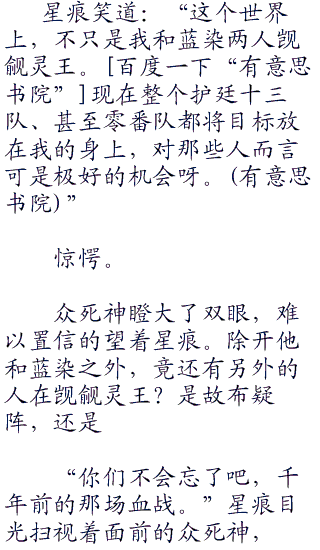 星痕笑道：“这个世界
上，不只是我和蓝染两人觊
觎灵王。[百度一下“有意思
书院”]现在整个护廷十三
队、甚至零番队都将目标放
在我的身上，对那些人而言
可是极好的机会呀。(有意思
书院)”
惊愕。
众死神瞪大了双眼，难
以置信的望着星痕。除开他
和蓝染之外，竟还有另外的
人在觊觎灵王？是故布疑
阵，还是
“你们不会忘了吧，千
年前的那场血战。”星痕目
光扫视着面前的众死神，